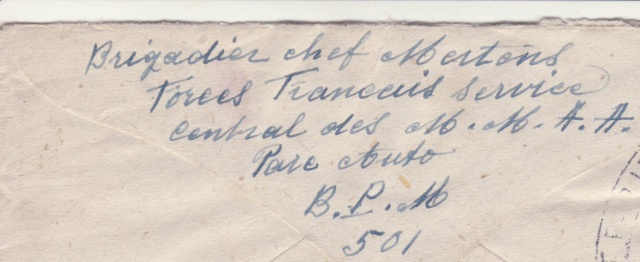 Brigadier chef Mertens
Forces Francais service
central des M.M.A.A.
Parc Auto
B.P.M
501